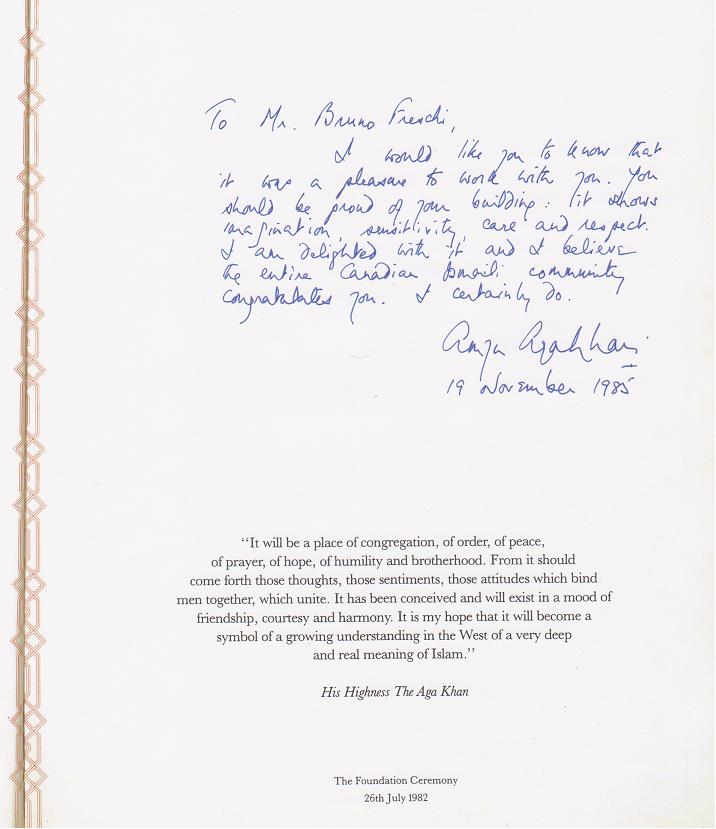 To Mr. Bruno Freschi,
I would like you to know that
it was a pleasure to work with you. You
should be proud of your building: it shows
imagination, sensitivity, care and respect.
I am delighted with it and I believe
the entire Canadian Ismaili community
congratulates you. I certainly do.
Aga Khan
19 November 1985
‘‘It will be a place of congregation, of order, of peace,
of prayer, of hope, of humility and brotherhood. From it should
come forth those thoughts, those sentiments, those attitudes which bind
men together, which unite. It has been conceived and will exist in a mood of
friendship, courtesy and harmony. It is my hope that it will become a
symbol of a growing understanding in the West of a very deep
and real meaning of Islam.’’
His Highness The Aga Khan
The Foundation Ceremony
26th July 1982